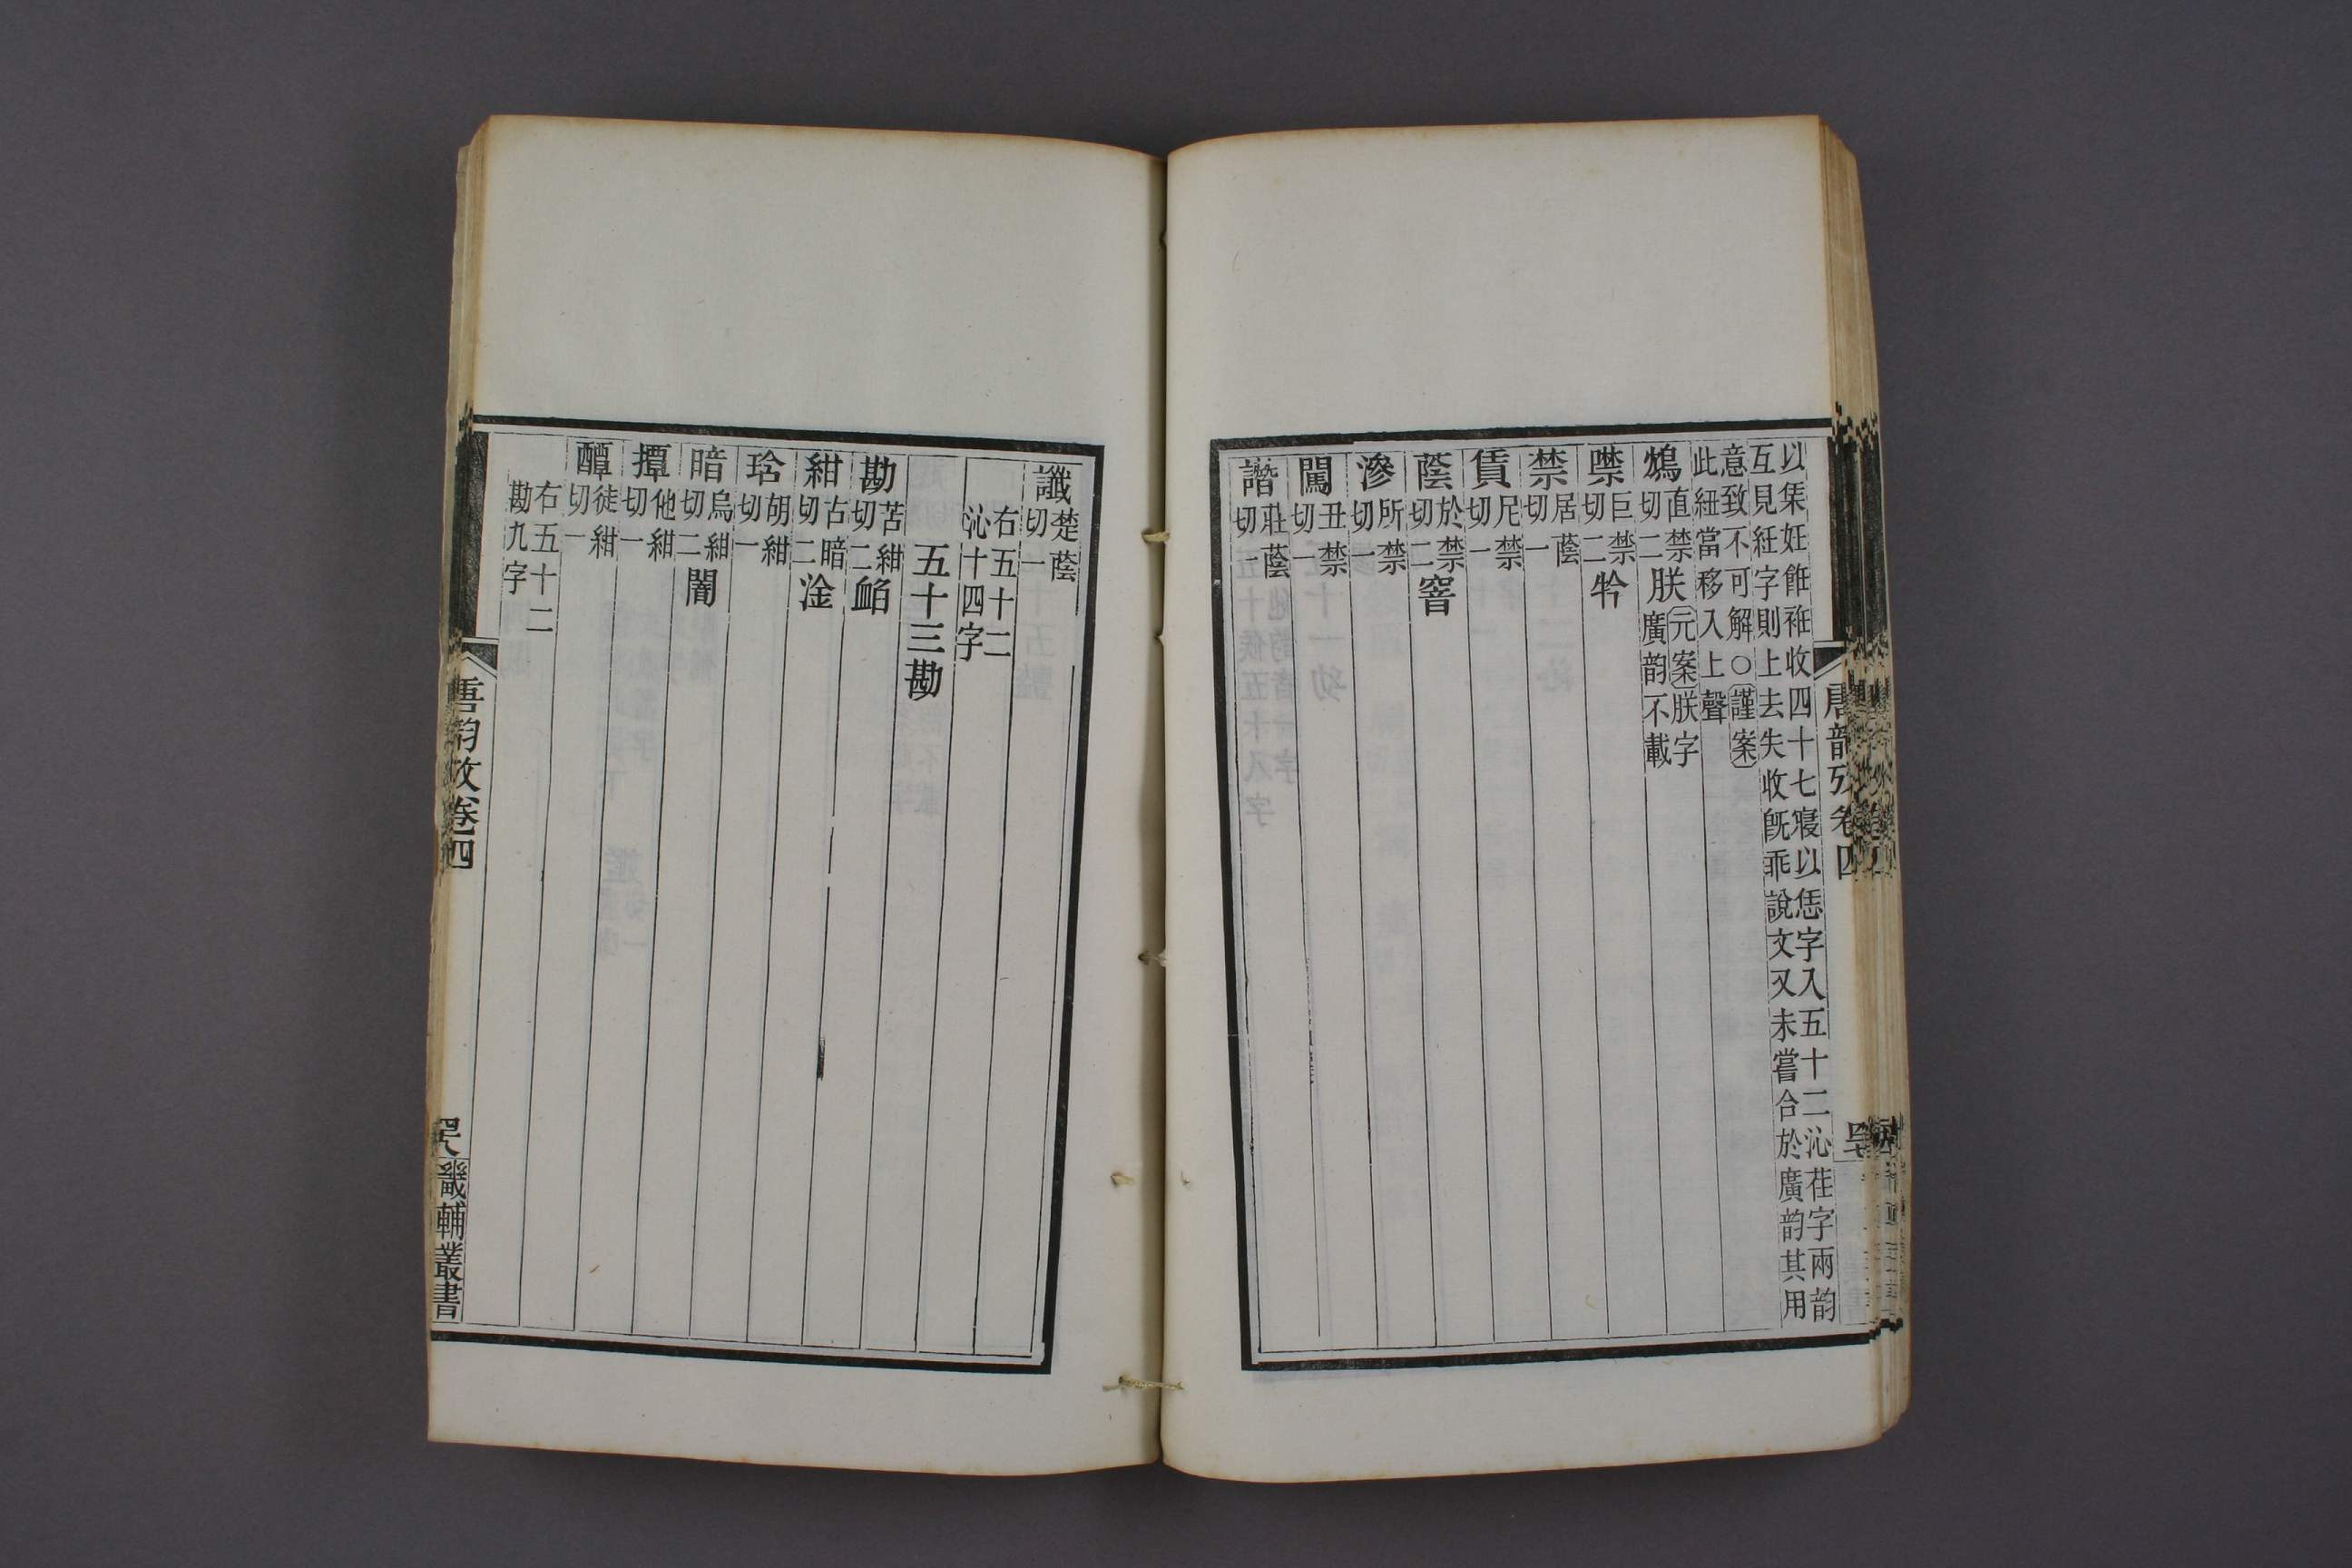 以恁妊飪袵收四十七寑以恁字入五十二沁荏字兩韵
互見紝字則上去失收旣乖說文又未嘗合於廣韵其用
意致不可解○謹案
此紐當移入上聲
鴆直禁切二朕元案朕字廣韵不載
噤巨禁切二㸧
禁居蔭切一
賃尼禁切一
蔭於禁切二窨
滲所禁切一
闖丑禁切一
譖莊蔭切一
唐韵攷卷四
讖楚蔭切一
右五十二
沁十四字
五十三勘
勘苦紺切二衉
紺古暗切二淦
琀胡紺切一
暗烏紺切二闇
撢他紺切一
醰徒紺切一
右五十三
勘九字
唐韵攷卷四
畿輔叢書